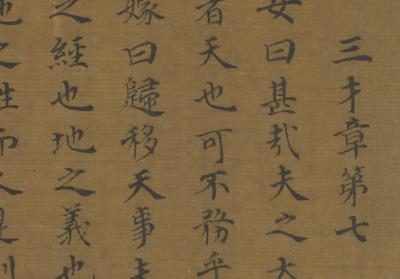 三才章第七
女曰甚哉夫之大
者天也可不務乎
嫁曰歸移天事夫
之經也地之義也
也之性而人是則